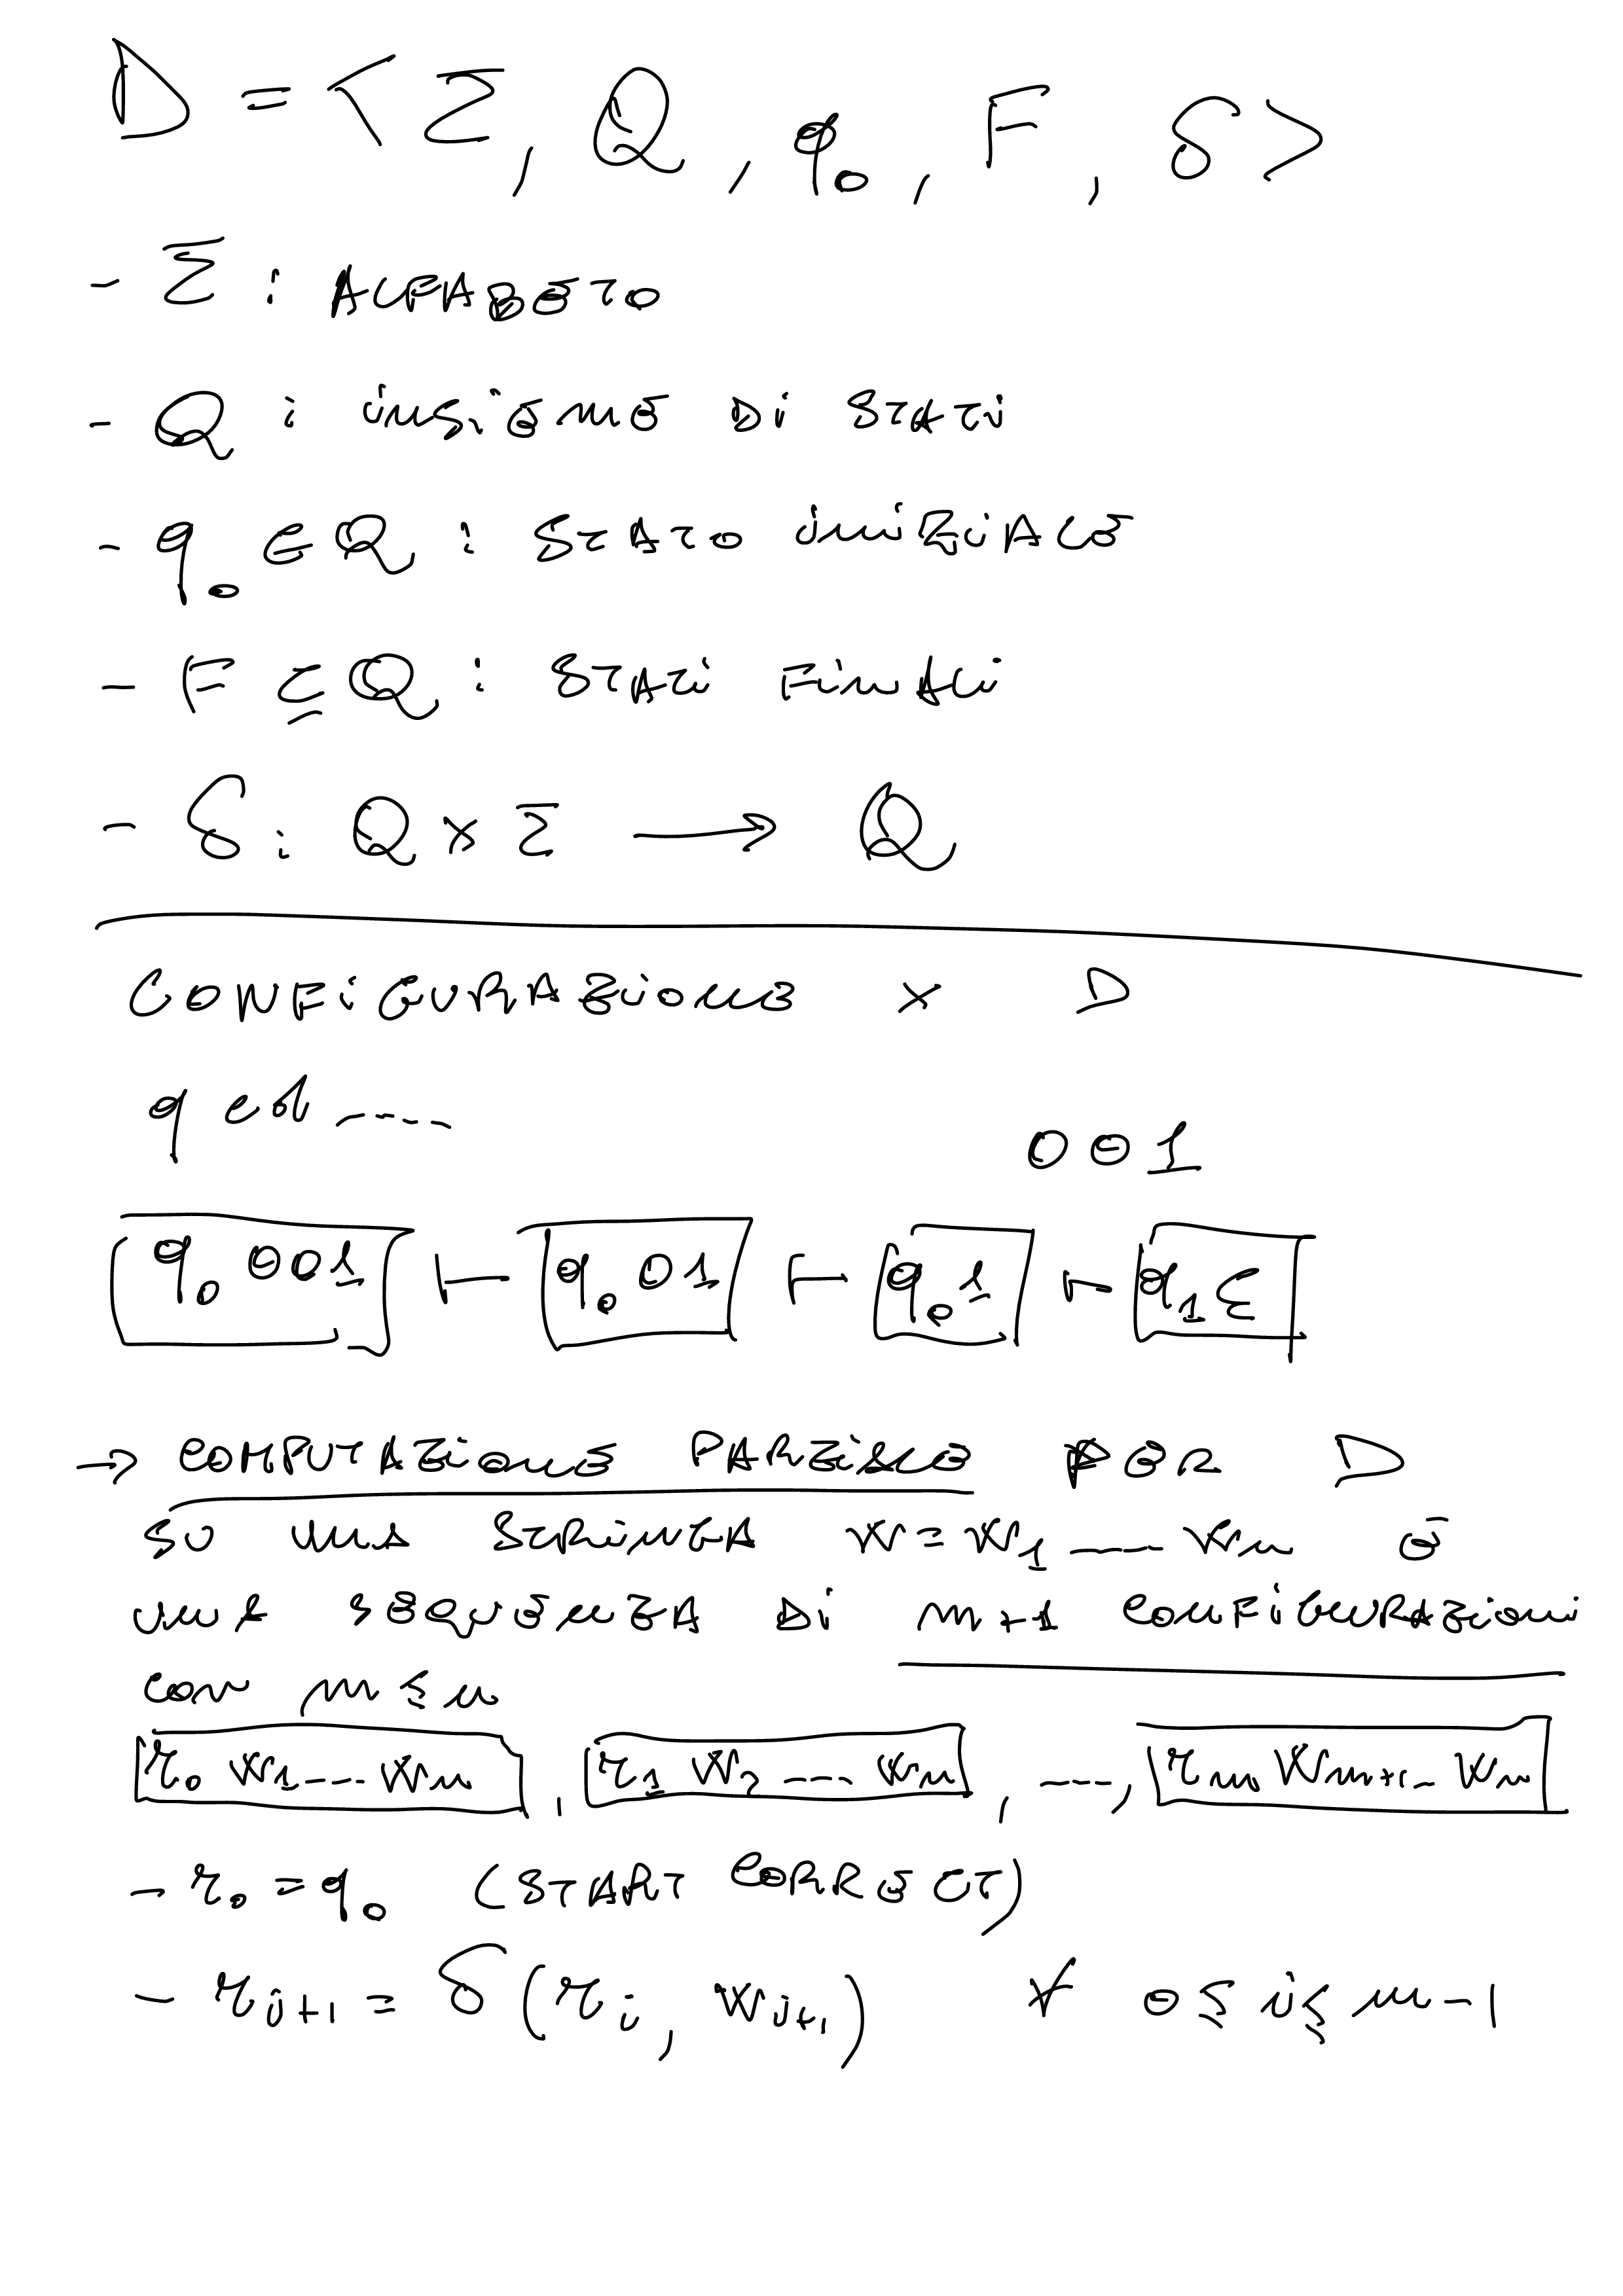 D = < Σ, Q, q₀, F, δ >
- Σ : ALFABETO
- Q : INSIEME DI STATI
- q₀ ∈ Q : STATO INIZIALE
- F ⊆ Q : STATI FINALI
- δ : Q × Σ ⟶ Q
CONFIGURAZIONE × D
q ed ----
001
q₀ 001 ⊢ q₀ 01 ⊢ q₀ 1 ⊢ q₁ ε
→ COMPUTAZIONE PARZIALE PER D
SU UNA STRINGA w = w₁ ---- wₙ È
UNA SEQUENZA DI m+1 CONFIGURAZIONI
CON m ≤ n
r₀ w₁---- wₙ , r₁ w₂ ---- wₙ , ----, rₘ wₘ₊₁-- wₙ
- r₀ = q₀ (START CORRECT)
- rᵢ₊₁ = δ(rᵢ, wᵢ₊₁) ∀ 0 ≤ i ≤ m-1